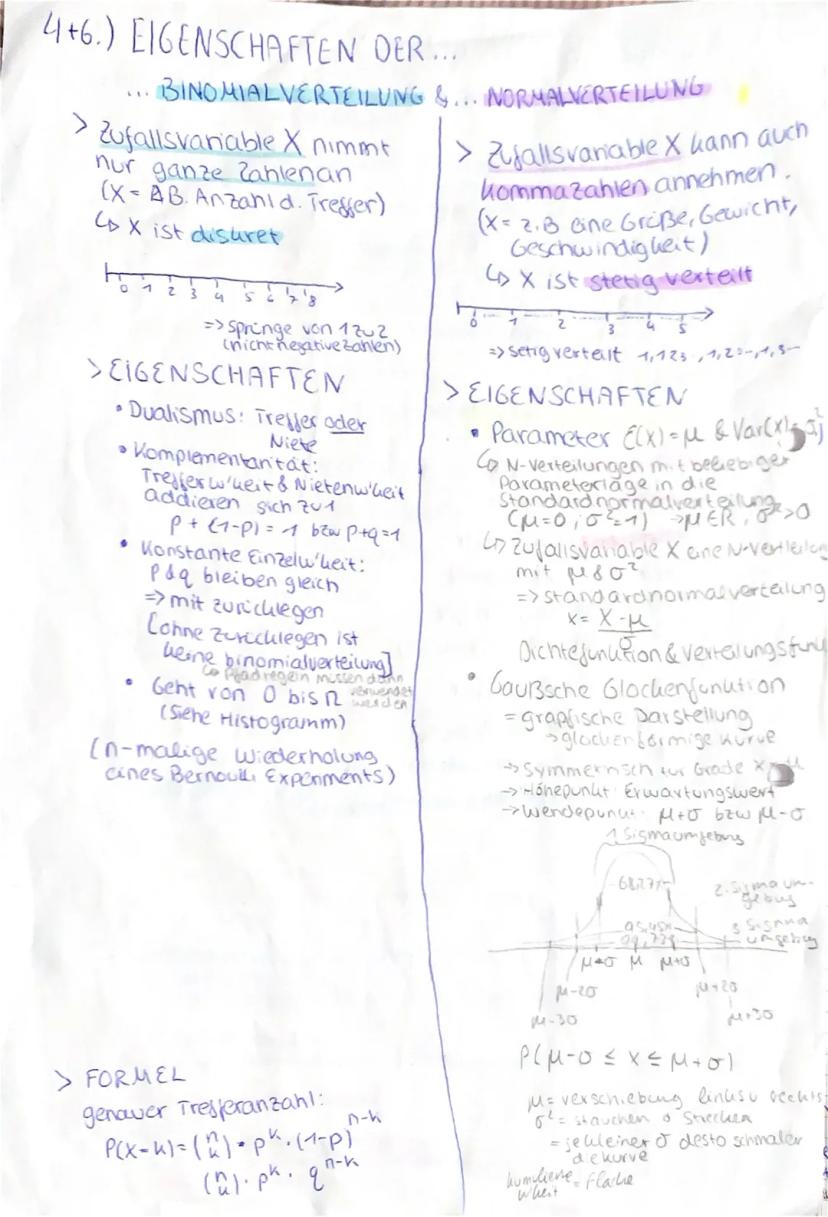 4+6.) EIGENSCHAFTEN DER...
... BINOMIALVERTEILUNG & ... NORMALVERTEILUNG
> Zufallsvariable X nimmt
nur ganze Zahlen an
(X = z.B. Anzahl d. Treffer)
↳ X ist diskret
0 1 2 3 4 5 6 7 8
=> Sprünge von 1 zu 2
(nicht negative Zahlen)
> EIGENSCHAFTEN
• Dualismus: Treffer oder
Niete
• Komplementarität:
Trefferw'keit & Nietenw'keit
addieren sich zu 1
p + (1-p) = 1 bzw p+q=1
• Konstante Einzelw'keit:
p & q bleiben gleich
=> mit zurücklegen
[ohne zurücklegen ist
keine binomialverteilung]
↳ Pfadregeln müssen dann
verwendet
werden
• Geht von 0 bis n
(siehe Histogramm)
(n-malige Wiederholung
eines Bernoulli Experiments)
> FORMEL
genauer Trefferanzahl:
P(X=k) = (n k) · p^k · (1-p)^n-k
(n k) · p^k · q^n-k
> Zufallsvariable X kann auch
Kommazahlen annehmen.
(X = z.B eine Größe, Gewicht,
Geschwindigkeit)
↳ X ist stetig verteilt
0 1 2 3 4 5
=> setig verteilt 1,123, 1,2..., 1,3...
> EIGENSCHAFTEN
• Parameter E(X)=μ & Var(X)=
↳ N-Verteilungen mit beliebiger
Parameterlage in die
Standardnormalverteilung
(μ=0; σ²=1) → μ∈R, σ²>0
↳ Zufallsvariable X eine N-Verteilung
mit μ & σ²
=> standardnormalverteilung
x = X-μ / σ
Dichtefunktion & Verteilungsfun
• Gaußsche Glockenfunktion
= grapfische Darstellung
→ glockenförmige Kurve
→ Symmetrisch zur Grade x
→ Höhepunkt Erwartungswert
→ Wendepunkt: μ+σ bzw μ-σ
1 Sigmaumgebung
68,27%
2. Sigmaum-
gebung
95,45%
3 Sigma
umgebung
99,73%
μ-σ μ μ+σ
μ-2σ μ+2σ
μ-3σ μ+3σ
P(μ-σ ≤ x ≤ μ+σ)
μ = verschiebung links u rechts
σ² = stauchen o Strecken
= je kleiner σ desto schmaler
die kurve
kumulierte = Fläche
w'keit